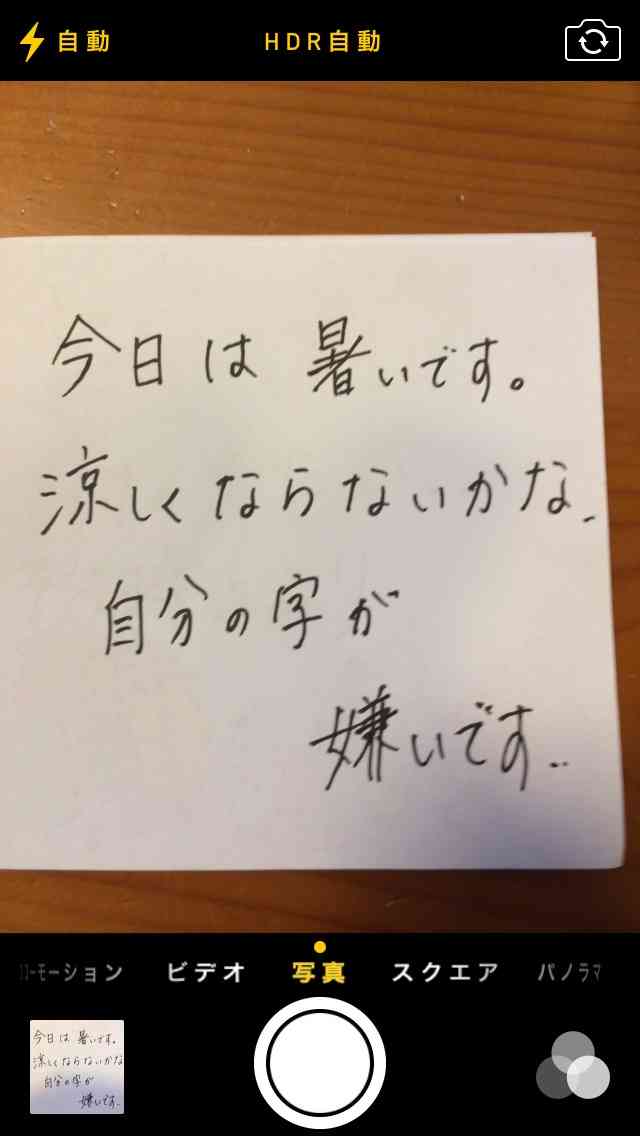 自動 HDR自動
今日は暑いです。
涼しくならないかな.
自分の字が
嫌いです..
ローモーション ビデオ 写真 スクエア パノラマ
今日は暑いです。
涼しくならないかな
自分の字が
嫌いです..